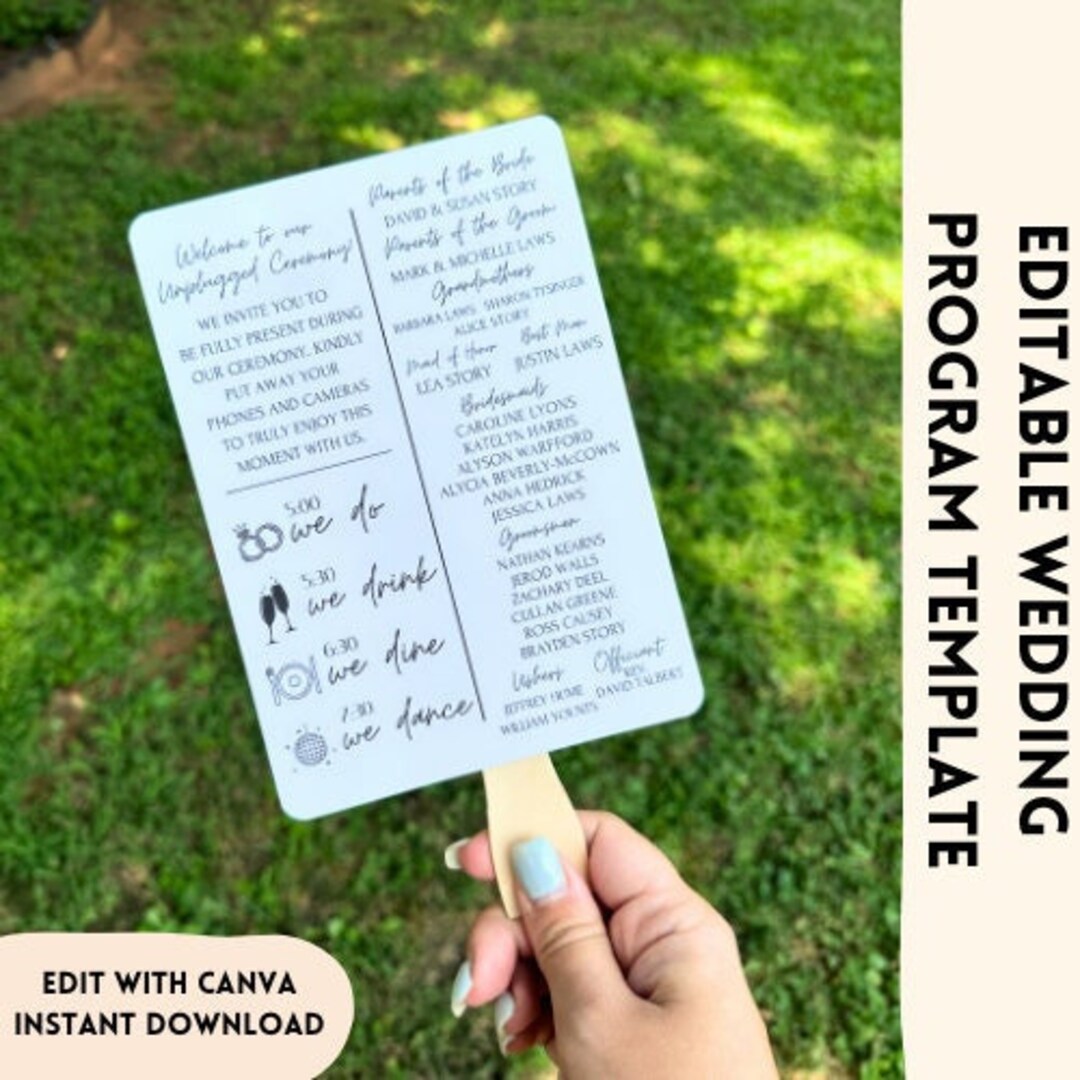 Welcome to our
Unplugged Ceremony!
WE INVITE YOU TO
BE FULLY PRESENT DURING
OUR CEREMONY. KINDLY
PUT AWAY YOUR
PHONES AND CAMERAS
TO TRULY ENJOY THIS
MOMENT WITH US.
5:00
we do
5:30
we drink
6:30
we dine
7:30
we dance
Parents of the Bride
DAVID & SUSAN STORY
Parents of the Groom
MARK & MICHELLE LAWS
Grandmothers
BARBARA LAWS SHARON TYSINGER
ALICE STORY
Maid of Honor Best Man
LEA STORY JUSTIN LAWS
Bridesmaids
CAROLINE LYONS
KATELYN HARRIS
ALYSON WARFFORD
ALYCIA BEVERLY-McCOWN
ANNA HEDRICK
JESSICA LAWS
Groomsmen
NATHAN KEARNS
JEROD WALLS
ZACHARY DEEL
CULLAN GREENE
ROSS CAUSEY
BRAYDEN STORY
Ushers Officiant
JEFFREY REV.
WILLIAM DAVID TALBERT
EDITABLE WEDDING
PROGRAM TEMPLATE
EDIT WITH CANVA
INSTANT DOWNLOAD